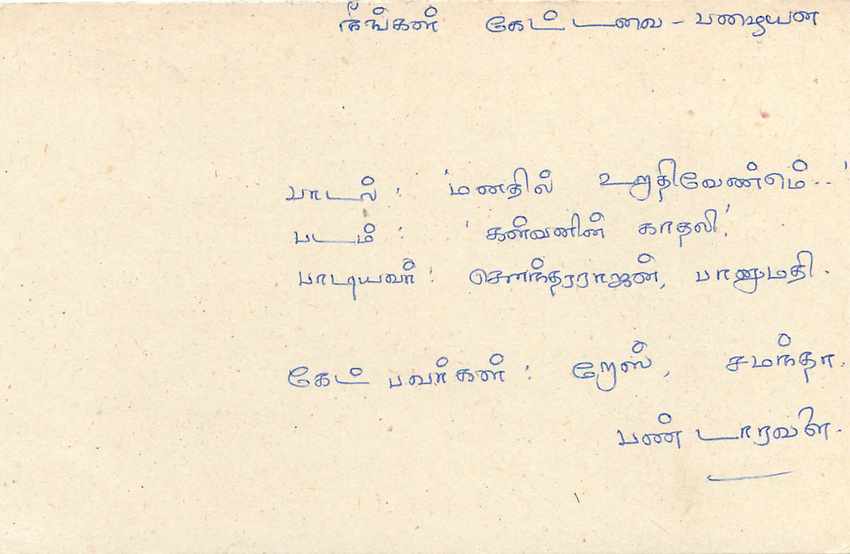 நீங்கள் கேட்டவை - பழையன
பாடல் : 'மனதில் உறுதிவேண்டும்..'
படம் : 'கள்வனின் காதலி'
பாடியவர் : சௌந்தரராஜன், பானுமதி.
கேட்பவர்கள் : றேஸ், சமந்தா.
பண்டாரவளை.